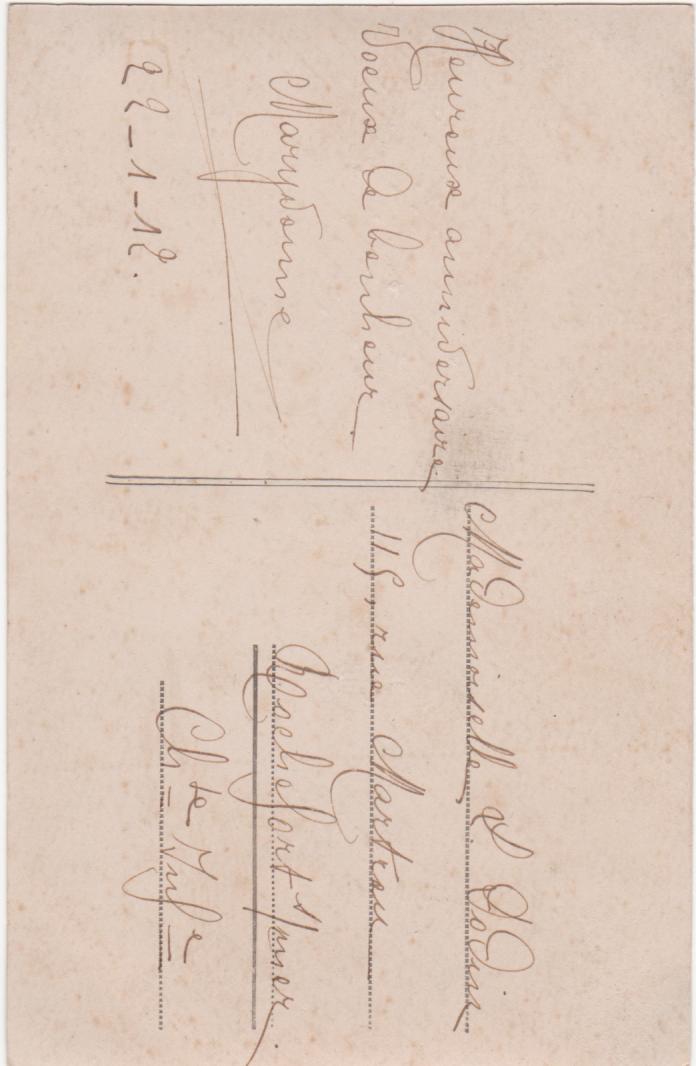 Heureux anniversaire
Voeux de bonheur
Maryvonne
22-1-12.
Mademoiselle S Dodin
115, rue Martrou
Rochefort s/mer.
Ch te Infre